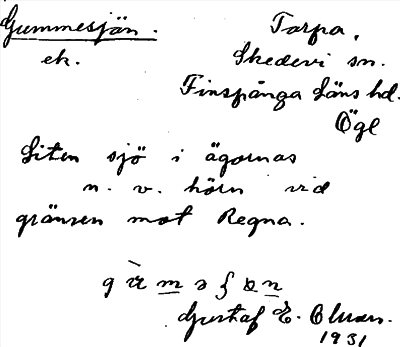 Gummesjön. Torpa,
ek. Skedevi sn.
Finspånga läns hd.
Ögl
Liten sjö i ägornas
n. v. hörn vid
gränsen mot Regna.
Gustaf E.
1931